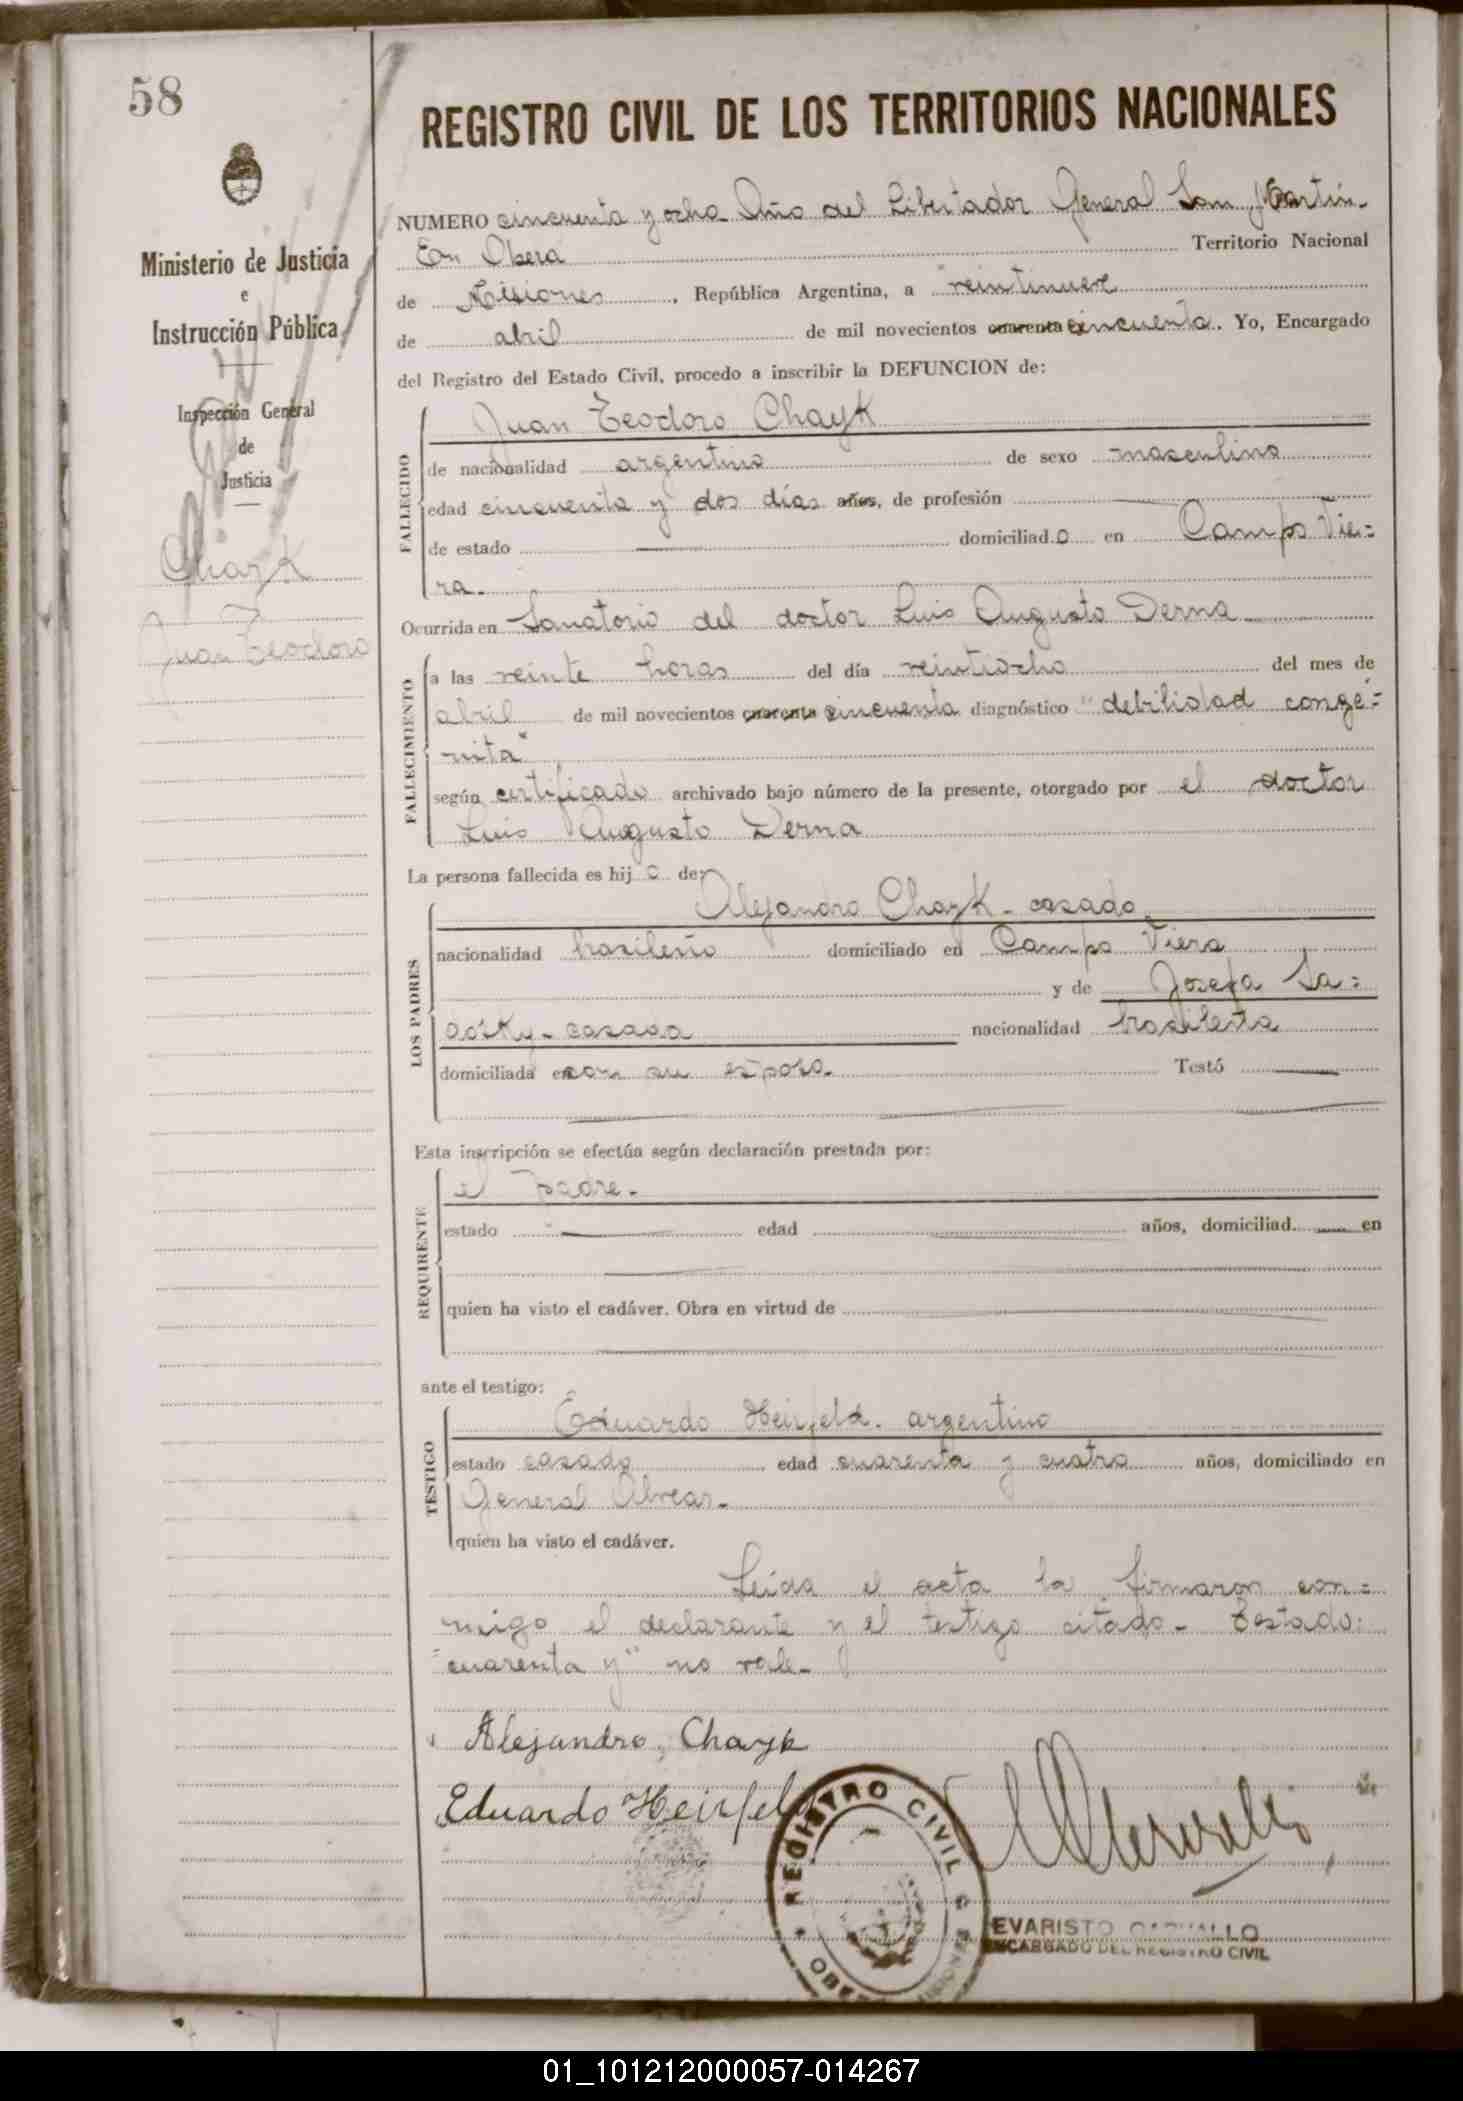 58
REGISTRO CIVIL DE LOS TERRITORIOS NACIONALES
Ministerio de Justicia
e
Instrucción Pública
Inspección General
de
Justicia
Chayk
Juan Teodoro
NUMERO cincuenta y ocho Año del Libertador General San Martín.
En Obera Territorio Nacional
de Misiones, República Argentina, a veintinueve
de abril de mil novecientos cuarenta cincuenta. Yo, Encargado
del Registro del Estado Civil, procedo a inscribir la DEFUNCION de:
FALLECIDO
Juan Teodoro Chayk
de nacionalidad argentino de sexo masculino
edad cincuenta y dos días años, de profesión
de estado domiciliado en Campo Vie=
ra.
Ocurrida en Sanatorio del doctor Luis Augusto Derna
FALLECIMIENTO
a las veinte horas del día veintiocho del mes de
abril de mil novecientos cuarenta cincuenta diagnóstico "debilidad congé=
nita"
según certificado archivado bajo número de la presente, otorgado por el doctor
Luis Augusto Derna
La persona fallecida es hijo de:
LOS PADRES
Alejandro Chayk - casado.
nacionalidad brasileño domiciliado en Campo Viera
y de Josefa Sa=
dosky - casada nacionalidad brasileña
domiciliada en con su esposo. Testó
Esta inscripción se efectúa según declaración prestada por:
REQUIRENTE
el padre.
estado edad años, domiciliad en
quien ha visto el cadáver. Obra en virtud de
ante el testigo:
TESTIGO
Eduardo Heirfeld. argentino
estado casado edad cuarenta y cuatro años, domiciliado en
General Alvear.
quien ha visto el cadáver.
Leída el acta la firmaron con=
migo el declarante y el testigo citado. Testado:
"cuarenta y" no vale.
Alejandro Chayk
Eduardo Heirfeld
REGISTRO CIVIL
EVARISTO CARVALLO
ENCARGADO DEL REGISTRO CIVIL
01_101212000057-014267